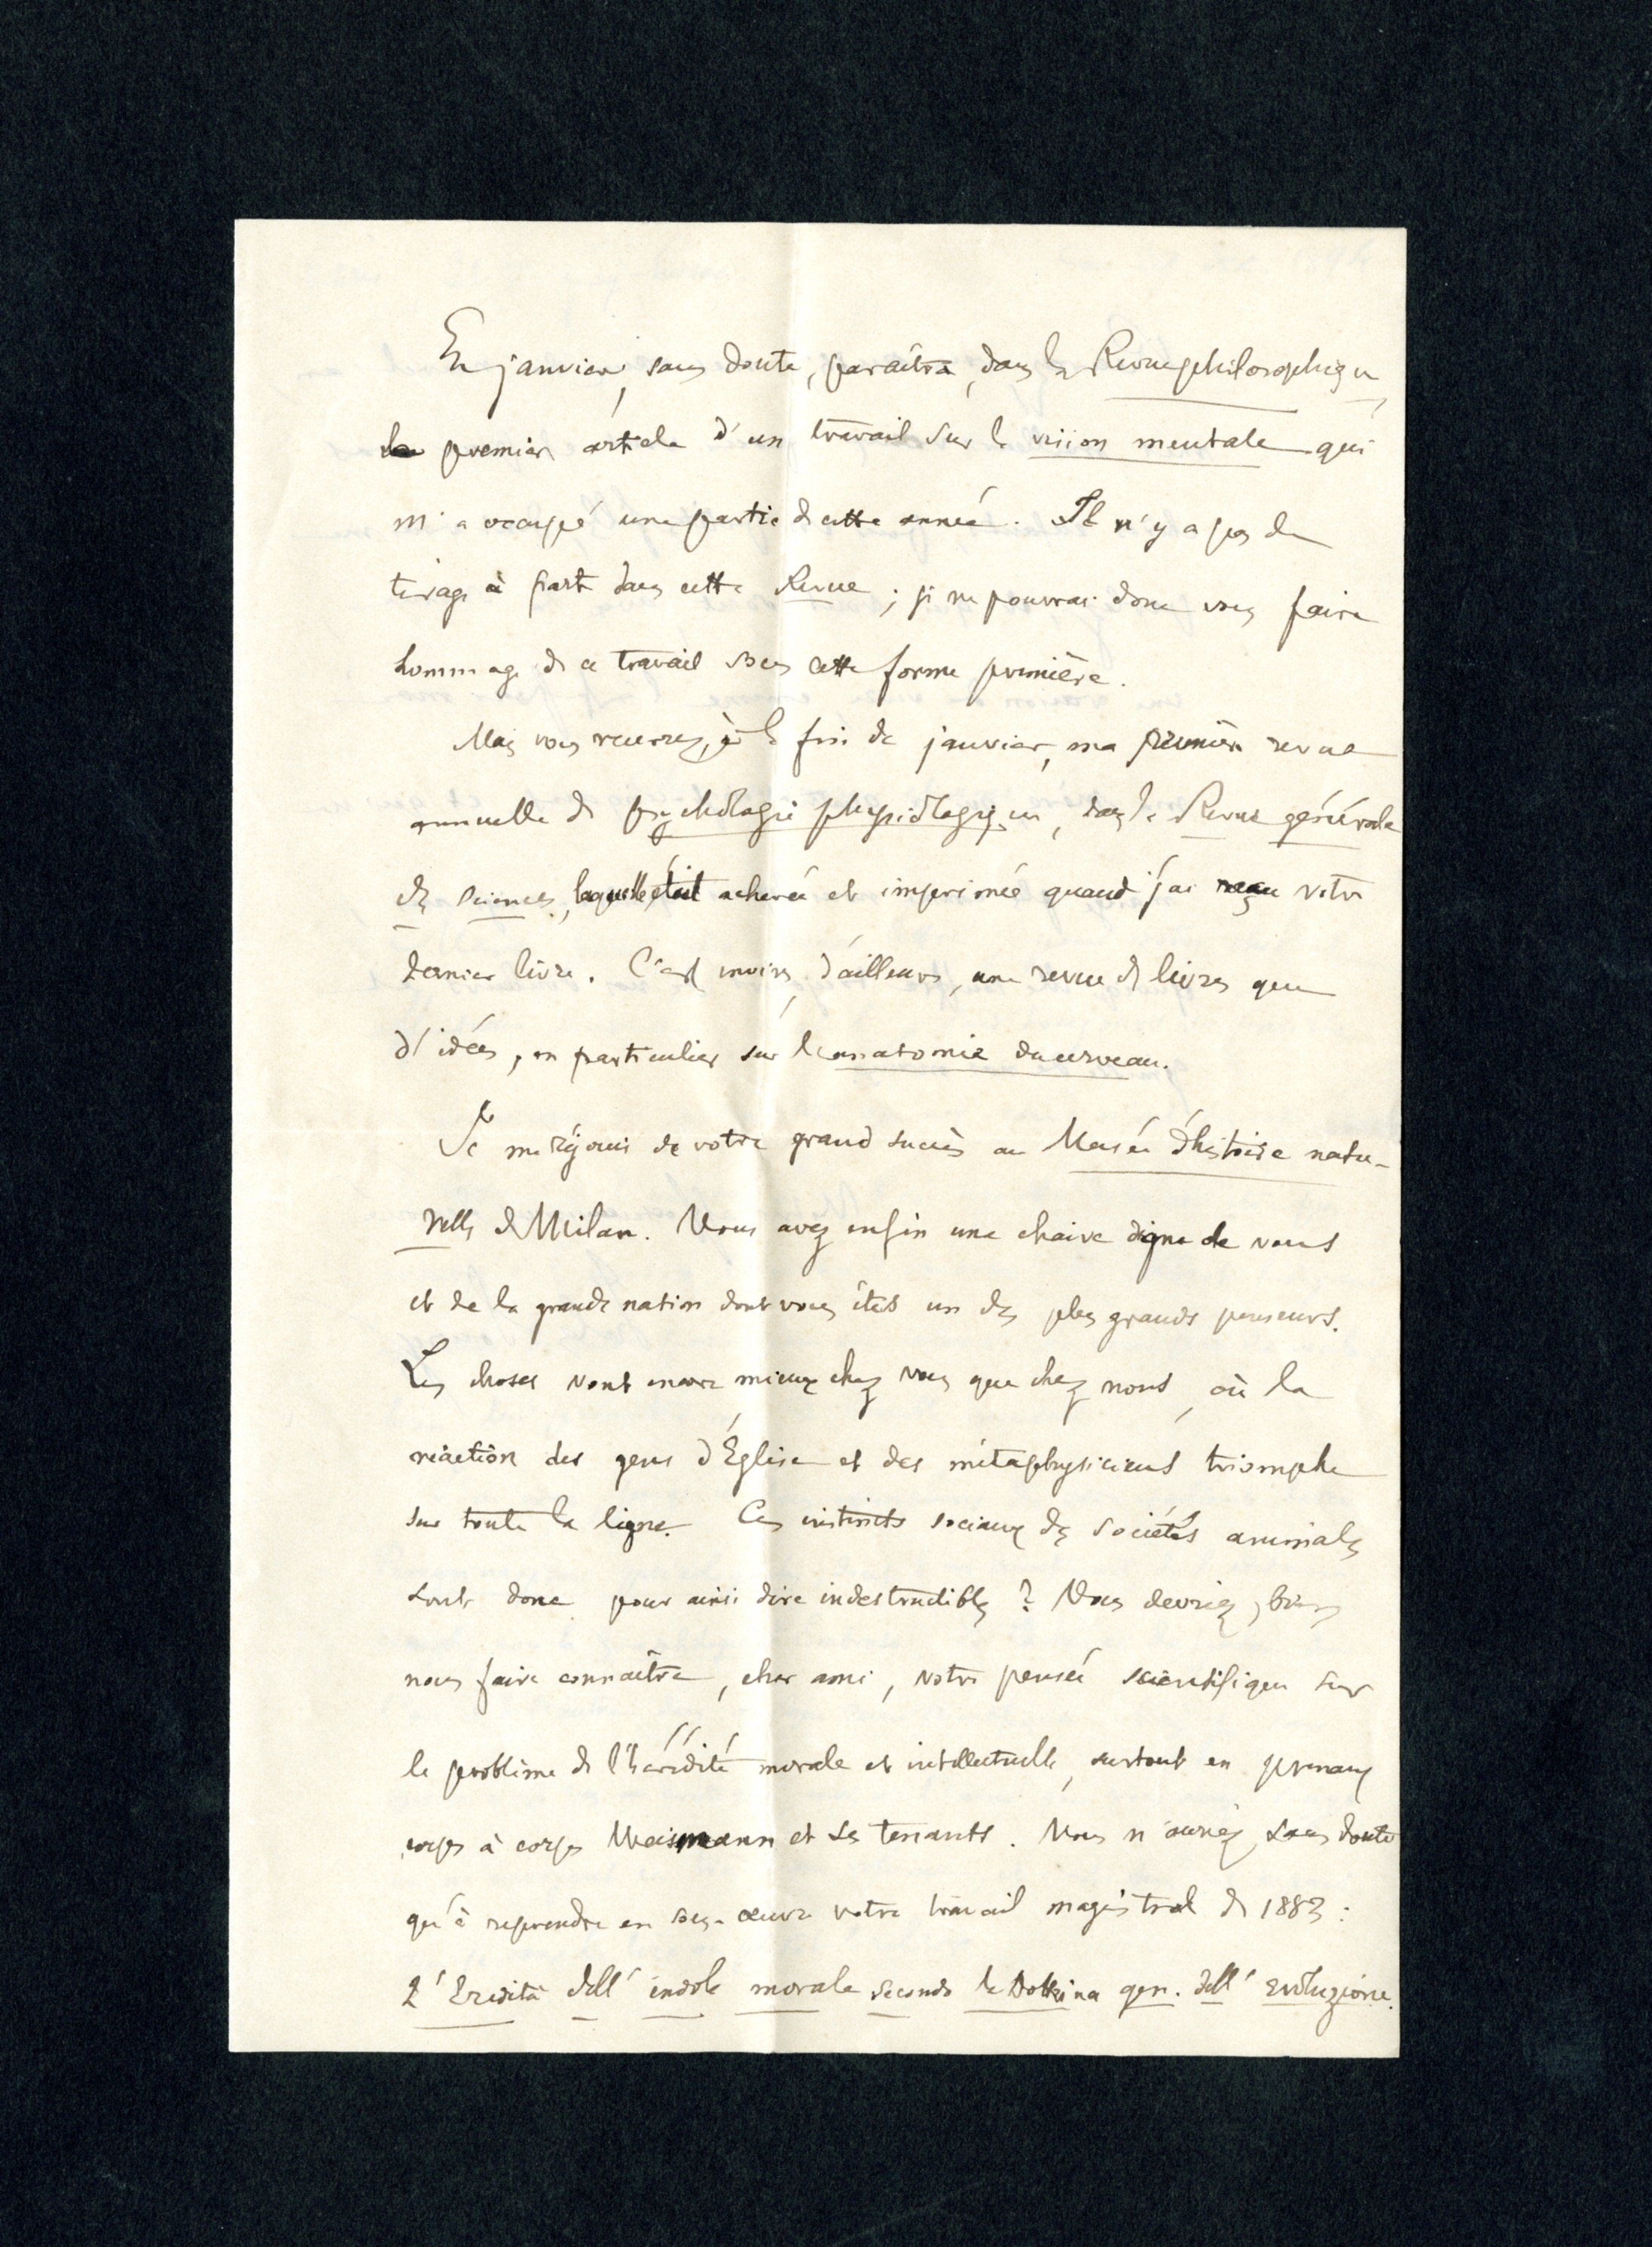 En janvier, sans doute, paraîtra, dans la Revue philosophique,
le premier article d'un travail sur la vision mentale qui
m'a occupé une partie de cette année. Il n'y a pas de
tirage à part dans cette Revue ; je ne pourrai donc vous faire
hommage de ce travail sous cette forme première.
Mais vous recevrez, à la fin de janvier, ma première revue
annuelle de psychologie physiologique, dans la Revue générale
des Sciences, laquelle était achevée et imprimée quand j'ai reçu votre
dernier livre. C'est moins, d'ailleurs, une revue de livres que
d'idées, en particulier sur l'anatomie du cerveau.
Je me réjouis de votre grand succès au Musée d'histoire natu-
relle de Milan. Vous avez enfin une chaire digne de vous
et de la grande nation dont vous êtes un des plus grands penseurs.
Les choses vont encore mieux chez vous que chez nous, où la
réaction des gens d'Église et des métaphysiciens triomphe
sur toute la ligne. Ces instincts sociaux des sociétés animales
sont donc pour ainsi dire indestructibles ? Vous devriez bien
nous faire connaître, cher ami, votre pensée scientifique sur
le problème de l'hérédité morale et intellectuelle, surtout en prenant
corps à corps Weismann et ses tenants. Vous n'auriez sans doute
qu'à reprendre en sous-œuvre votre travail magistral de 1883 :
L'Eredità dell' indole morale secondo la Dottrina gen. dell' evoluzione.